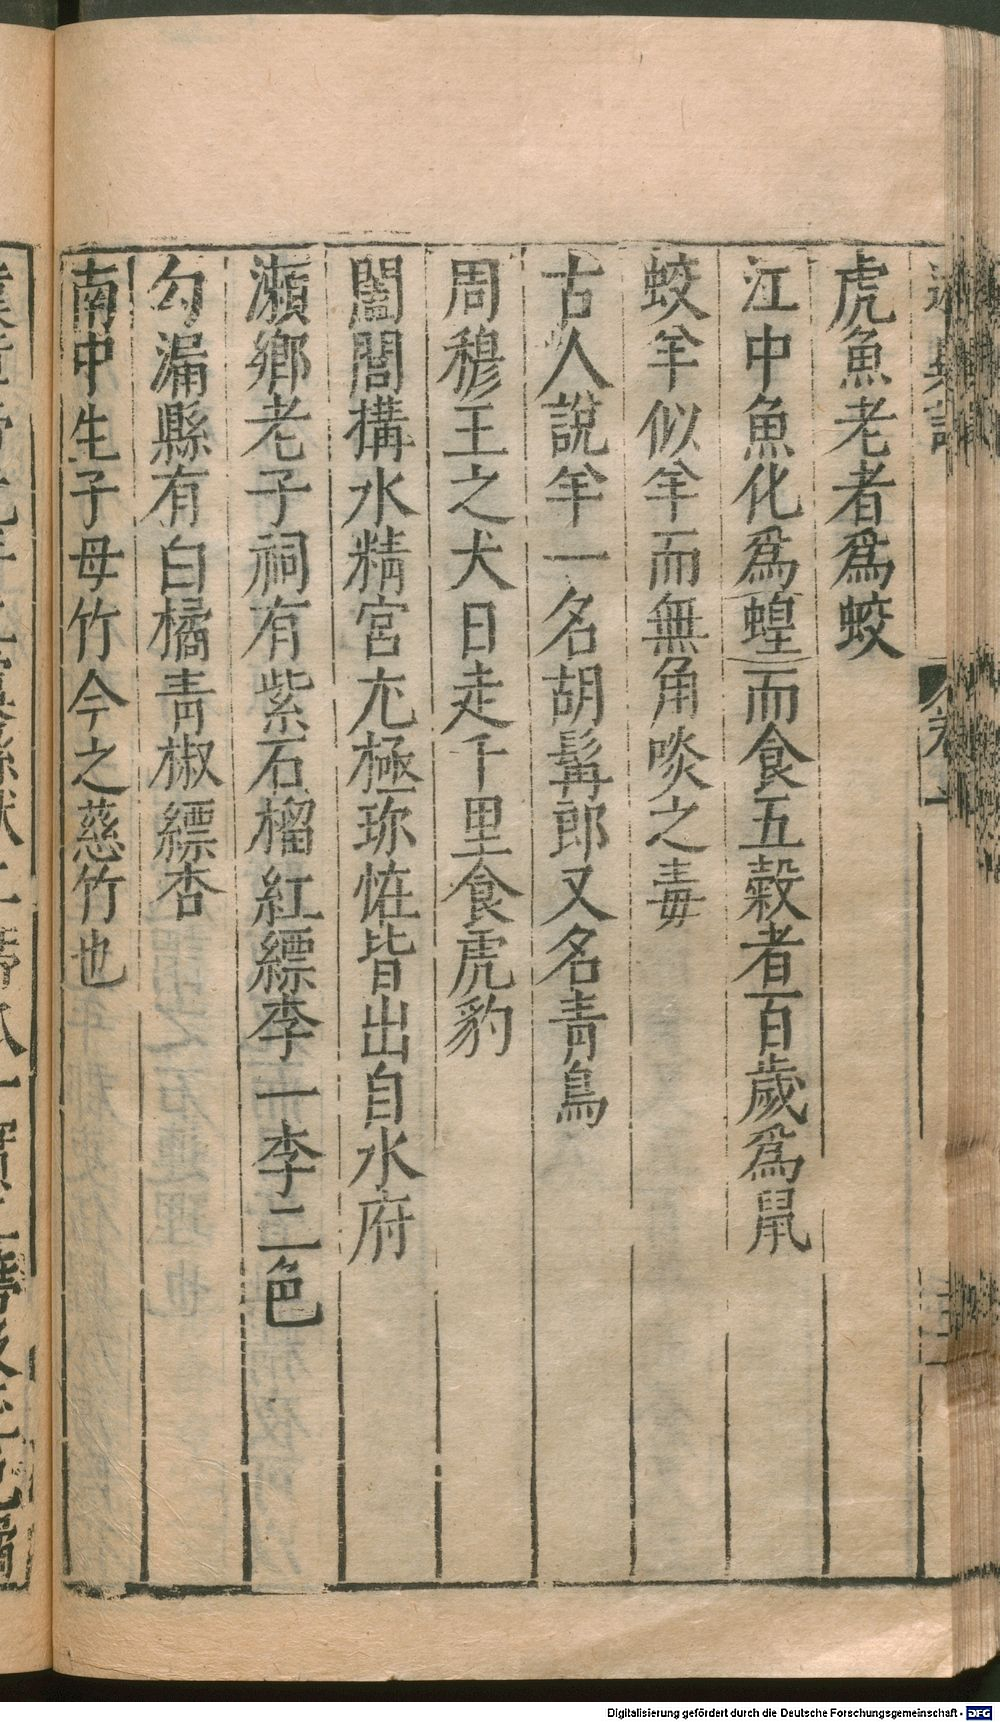 虎魚老者爲蛟
江中魚化爲蝗而食五穀者百歲爲鼠
蛟羊似羊而無角啖之毒
古人說羊一名胡髯郎又名青鳥
周穆王之犬日走千里食虎豹
闔閭構水精宮尤極珎恠皆出自水府
瀨鄉老子祠有紫石榴紅縹李一李二色
勾漏縣有白橘青椒縹杏
南中生子母竹今之慈竹也
Digitalisierung gefördert durch die Deutsche Forschungsgemeinschaft - DFG